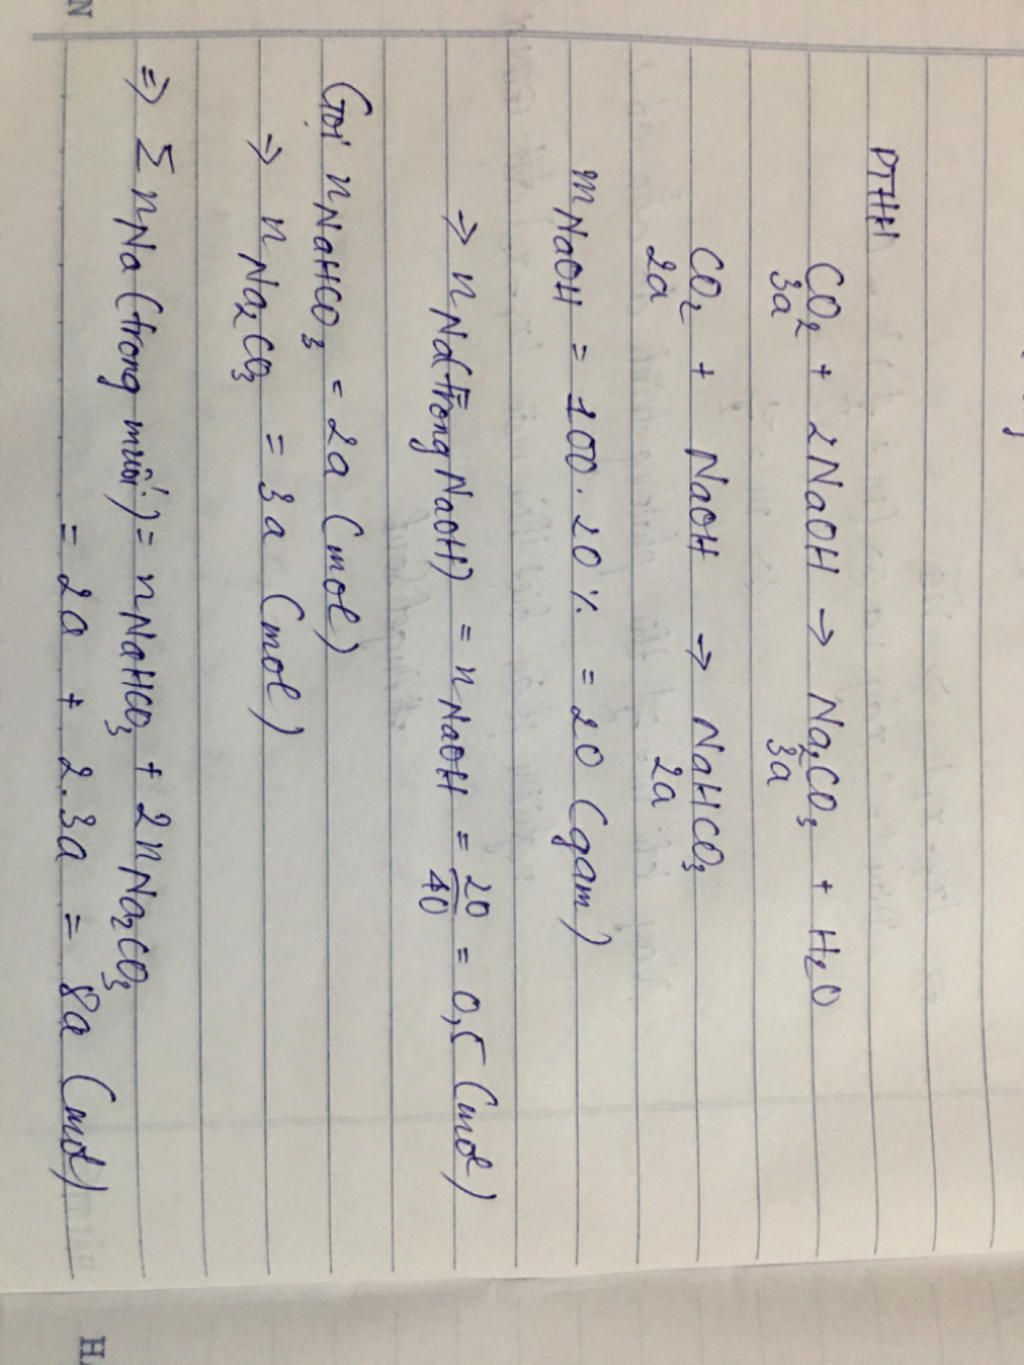 PTHH
CO2 + 2NaOH → Na2CO3 + H2O
3a 3a
CO2 + NaOH → NaHCO3
2a 2a
mNaOH = 100.20% = 20 (gam)
⇒ nNa(trong NaOH) = nNaOH = 20/40 = 0,5 (mol)
Gọi nNaHCO3 = 2a (mol)
⇒ nNa2CO3 = 3a (mol)
⇒ Σ nNa (trong muối) = nNaHCO3 + 2nNa2CO3
= 2a + 2.3a = 8a (mol)